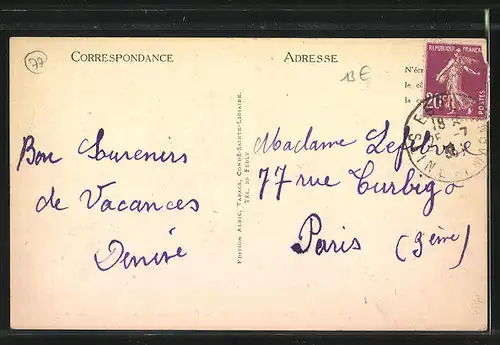 77
CORRESPONDANCE
ADRESSE
13€
N'é
le
la
REPUBLIQUE FRANÇAISE
20c
POSTES
Bon Souvenirs
de Vacances
Denise
EDITION ALRIC, TABACS, CONDÉ-SAINTE-LIBIAIRE.
TÉL. 29 ESBLY
Madame Lefebvre
77 rue Turbigo
Paris (3ème)